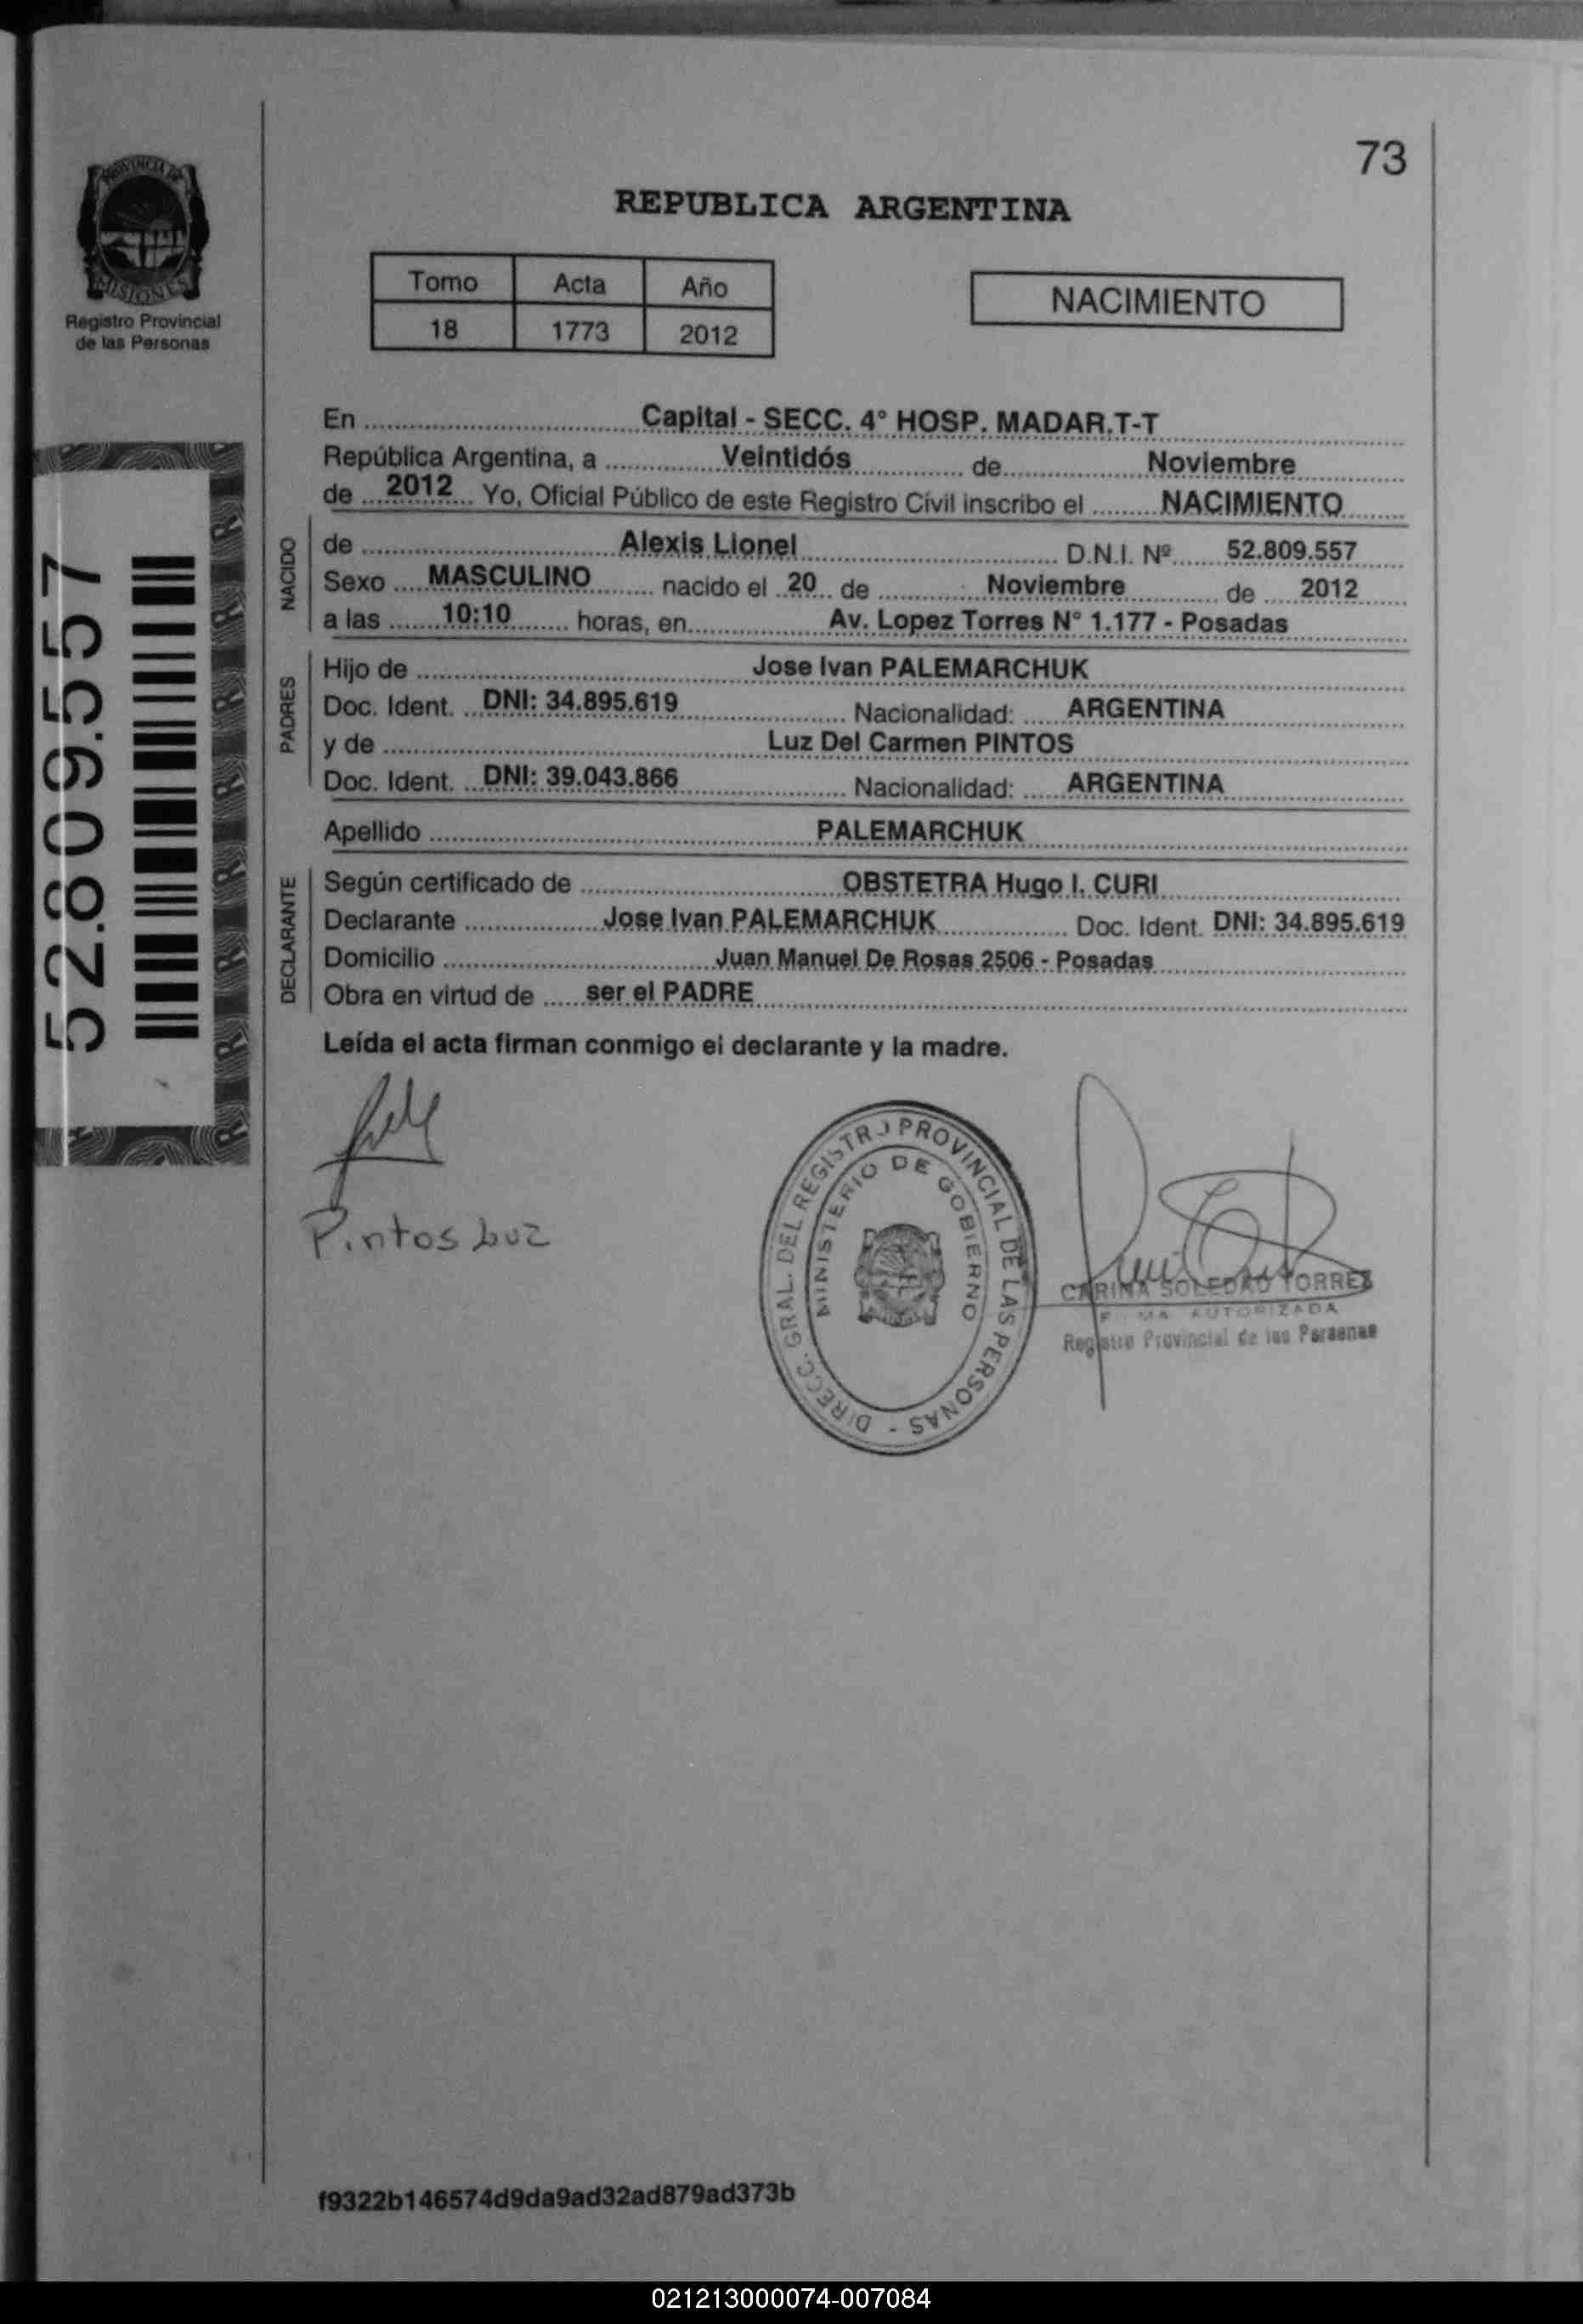 73
PROVINCIA DE
MISIONES
Registro Provincial
de las Personas
REPUBLICA ARGENTINA
Tomo Acta Año
18 1773 2012
NACIMIENTO
52.809.557
En Capital - SECC. 4° HOSP. MADAR.T-T
República Argentina, a Veintidós de Noviembre
de 2012 Yo, Oficial Público de este Registro Civil inscribo el NACIMIENTO
NACIDO
de Alexis Lionel D.N.I. Nº 52.809.557
Sexo MASCULINO nacido el 20 de Noviembre de 2012
a las 10:10 horas, en Av. Lopez Torres N° 1.177 - Posadas
PADRES
Hijo de Jose Ivan PALEMARCHUK
Doc. Ident. DNI: 34.895.619 Nacionalidad: ARGENTINA
y de Luz Del Carmen PINTOS
Doc. Ident. DNI: 39.043.866 Nacionalidad: ARGENTINA
Apellido PALEMARCHUK
DECLARANTE
Según certificado de OBSTETRA Hugo I. CURI
Declarante Jose Ivan PALEMARCHUK Doc. Ident. DNI: 34.895.619
Domicilio Juan Manuel De Rosas 2506 - Posadas
Obra en virtud de ser el PADRE
Leída el acta firman conmigo el declarante y la madre.
Pintos Luz
DIRECC. GRAL. DEL REGISTRO PROVINCIAL DE LAS PERSONAS -
MINISTERIO DE GOBIERNO
CARINA SOLEDAD TORRES
FIRMA AUTORIZADA
Registro Provincial de las Personas
f9322b146574d9da9ad32ad879ad373b
021213000074-007084